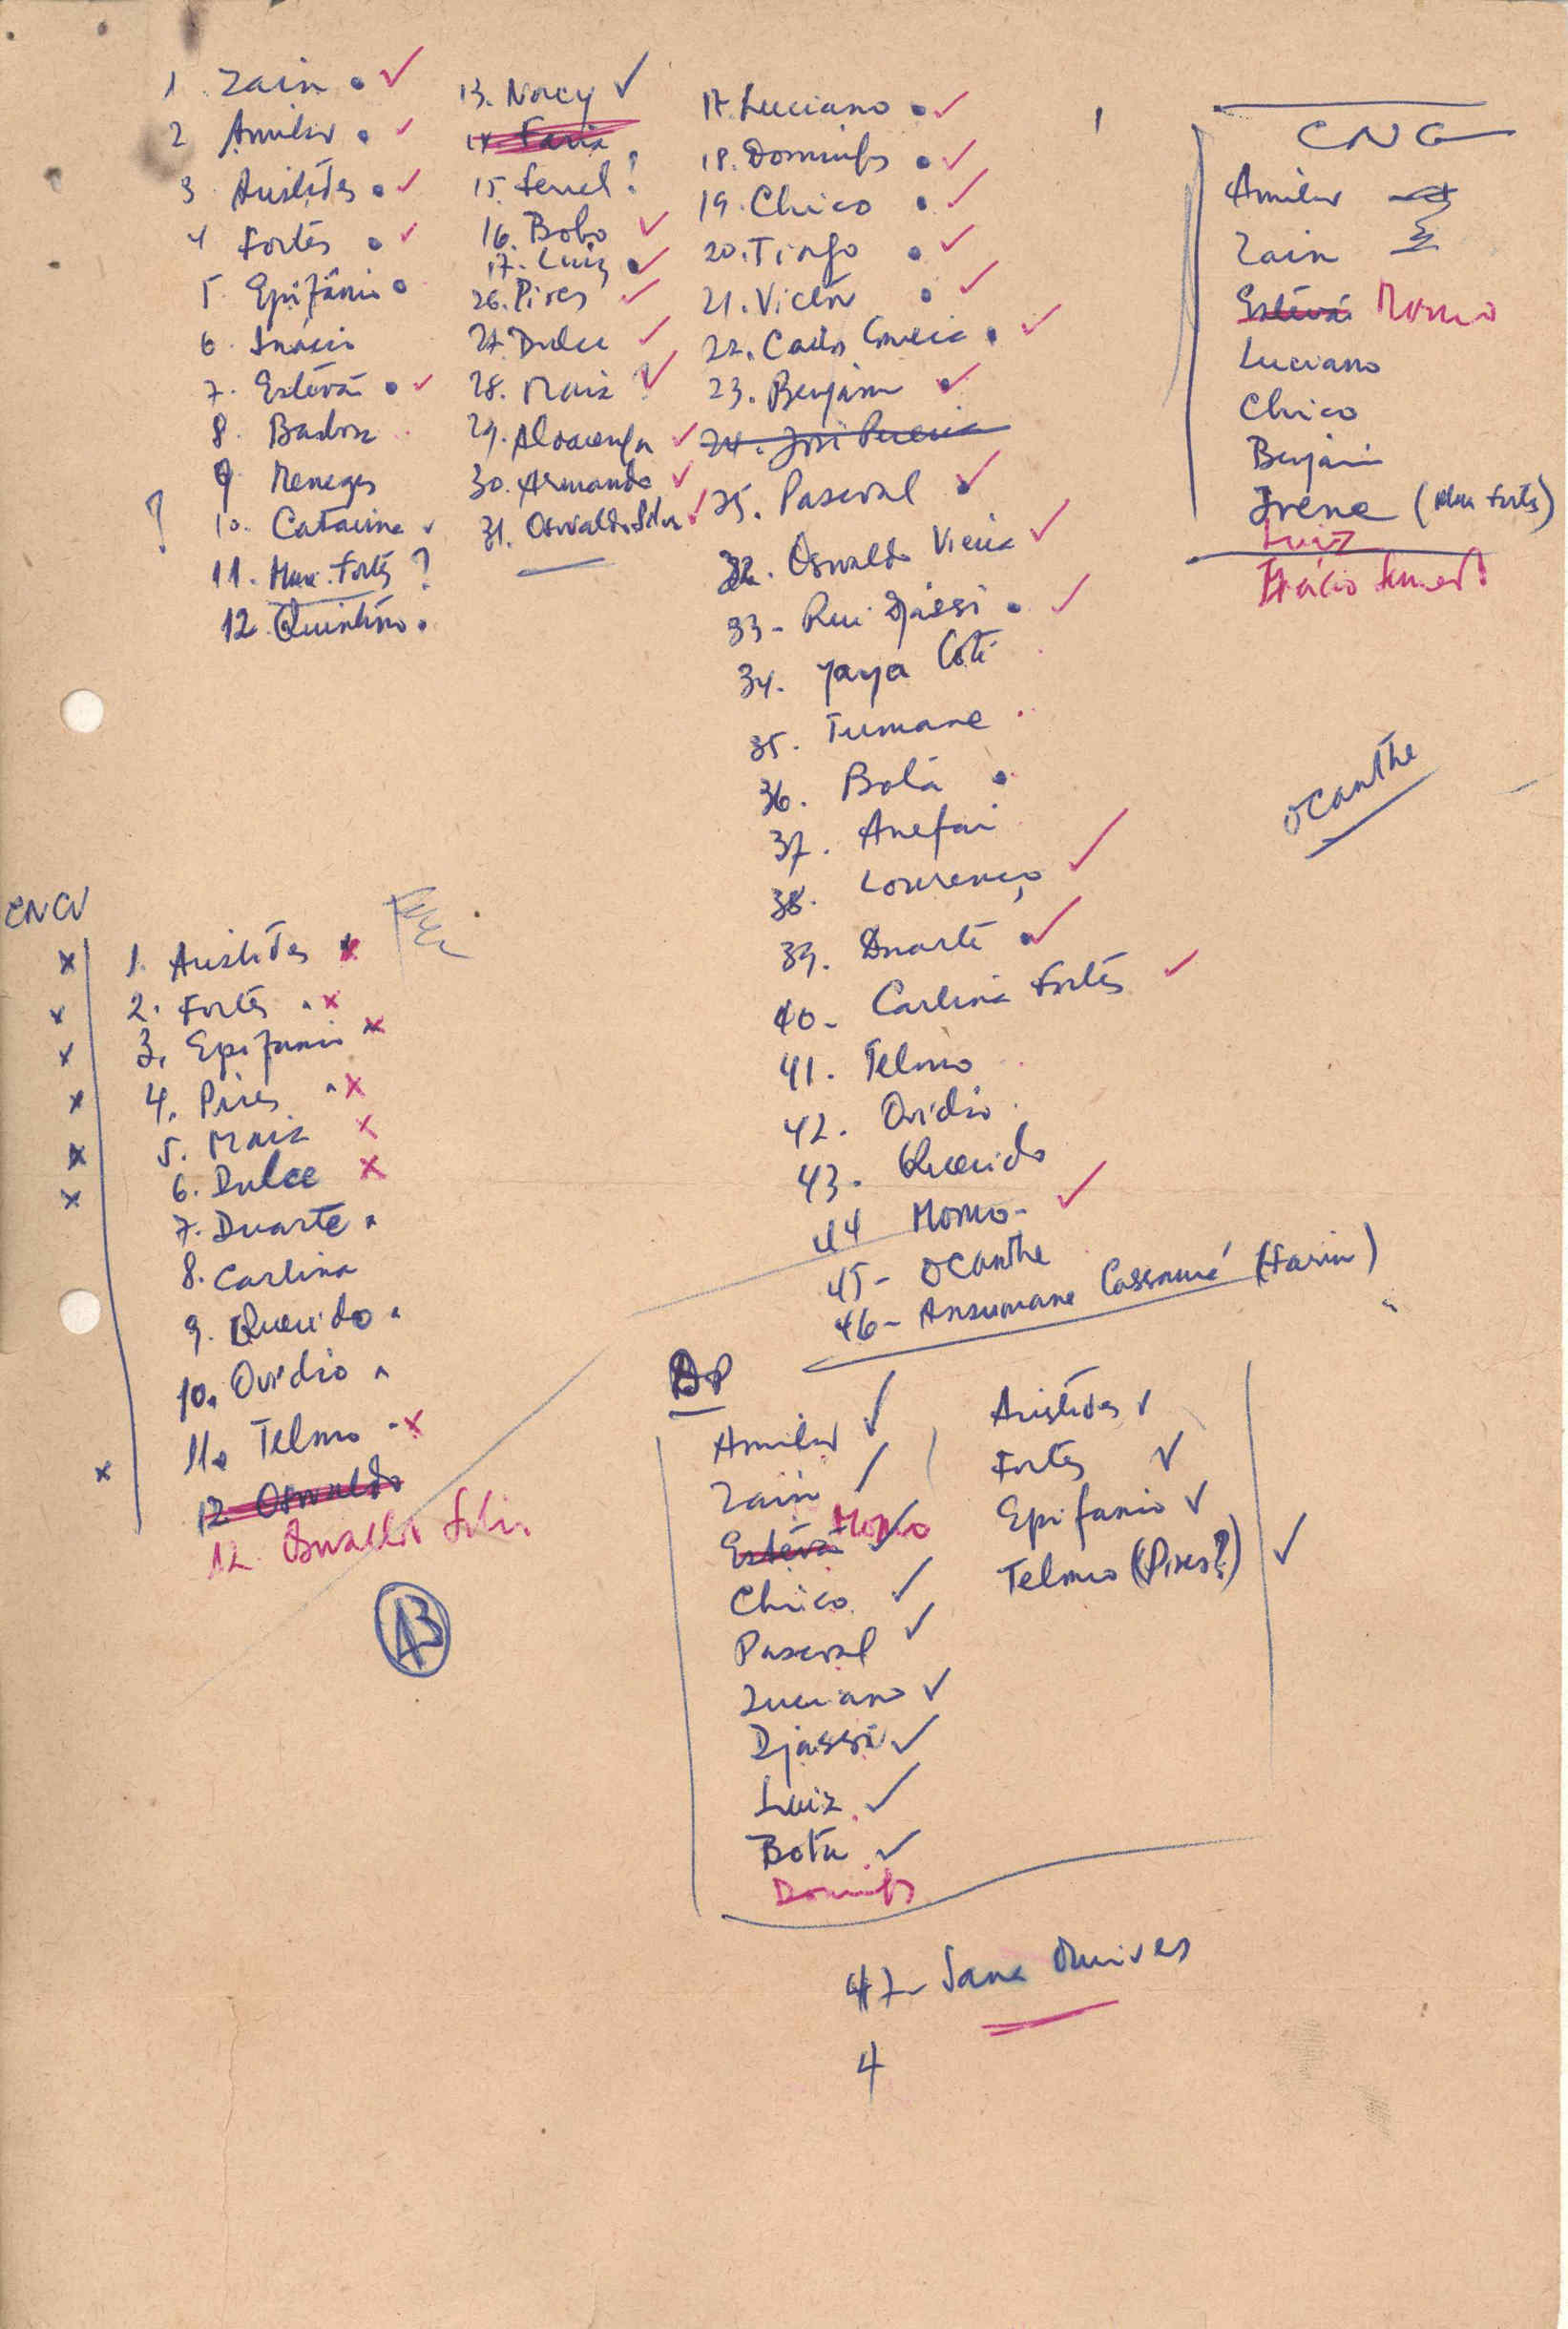 1. Zain • ✓
2 Amilcar • ✓
3 Aristides • ✓
4 Fortes • ✓
5. Epifânio •
6. Inácio
7. Estêvão • ✓
8. Barbosa
9 Menezes
? 10. Catarina ✓
11. Man. Fortes ?
12. Quintino •
13. Nocy ✓
14 Faria
15. Lenel ?
16. Bobo ✓
17. Luiz • ✓
26. Pires ✓
27. Dulce ✓
28. Maria ? ✓
29. Alvarenga ✓
30. Armando ✓
31. Osvaldo Silva ✓
17. Luciano • ✓
18. Domingos • ✓
19. Chico • ✓
20. Tiago • ✓
21. Victor • ✓
22. Carlos Correia • ✓
23. Benjam • ✓
24. José Pereira
25. Pascoal • ✓
32. Osvaldo Vieira ✓
33- Rui Djassi • ✓
34. Yaya Coté
35. Tumane
36. Bota •
37. Anefai
38. Lourenço ✓
39. Duarte • ✓
40- Carlina Fortes ✓
41. Telmo
42. Ovidio
43. Querido
44 Momo- ✓
45- Ocanthe
46- Ansumane Cassamá (Farim)
CNG
Amilcar
Zain
Estêvão Momo
Luciano
Chico
Benjam
Irene (Man Fortes)
Luiz
Inácio Semedo!
Ocanthe
CNCV
x 1. Aristides x
x 2. Fortes x
x 3. Epifanio x
x 4. Pires x
x 5. Maria x
x 6. Dulce x
7. Duarte
8. Carlina
9. Querido
10. Ovidio
11. Telmo - x
x 12 Osvaldo
12. Osvaldo Silva
43
BP
Amilcar ✓
Zain ✓
Estêvão Momo ✓
Chico ✓
Pascoal ✓
Luciano ✓
Djassi ✓
Luiz ✓
Bota ✓
Domingos
Aristides ✓
Fortes ✓
Epifanio ✓
Telmo (Pires?) ✓
47- Sana
4